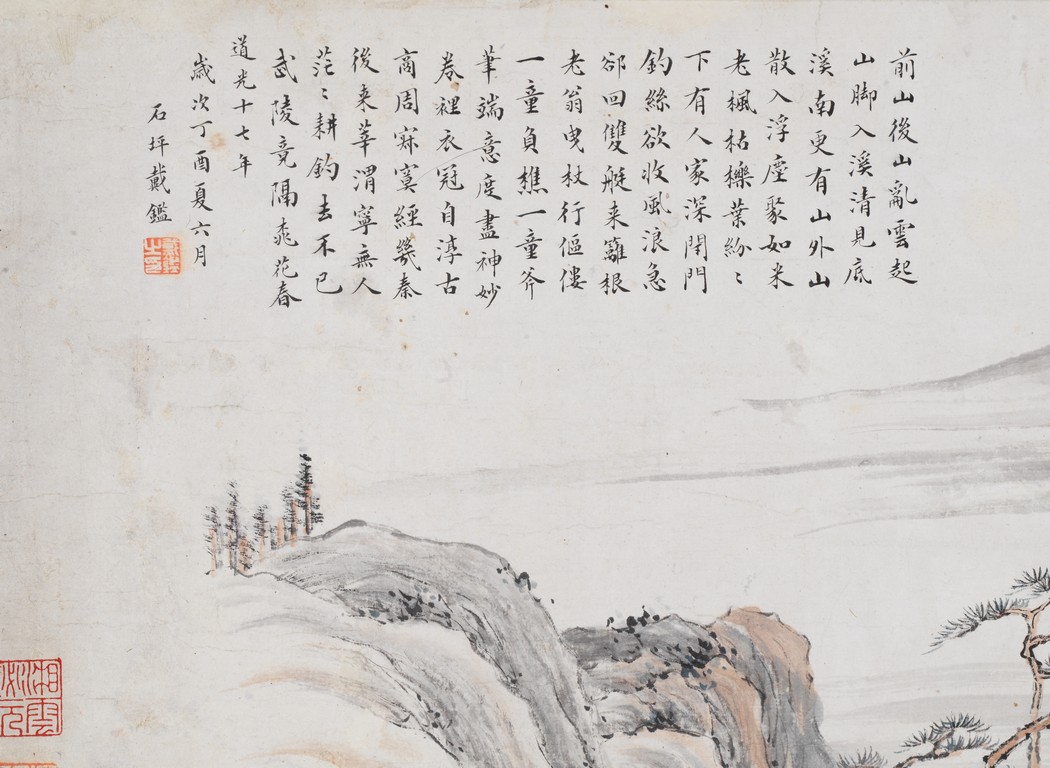 前山後山亂雲起
山脚入溪清見底
溪南更有山外山
散入浮塵聚如米
老楓枯櫟葉紛〻
下有人家深閉門
釣絲欲收風浪急
郤回雙艇来籬根
老翁曳杖行傴僂
一童負樵一童斧
筆端意度盡神妙
卷裡衣冠自淳古
商周寂寞經幾秦
後来莘渭寧無人
茫〻耕釣去不已
武陵竟隔桃花春
道光十七年
歲次丁酉夏六月
石坪戴鑑
湘雲